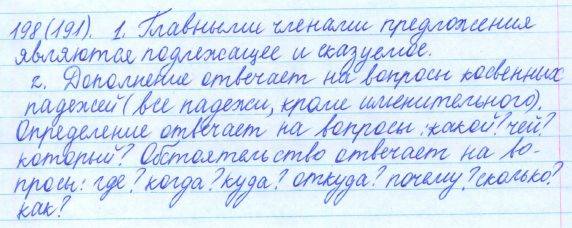 198(191). 1. Главными членами предложения
являются подлежащее и сказуемое.
2. Дополнение отвечает на вопросы косвенных
падежей (все падежи, кроме именительного).
Определение отвечает на вопросы: какой? чей?
который? Обстоятельство отвечает на во-
просы: где? когда? куда? откуда? почему? сколько?
как?